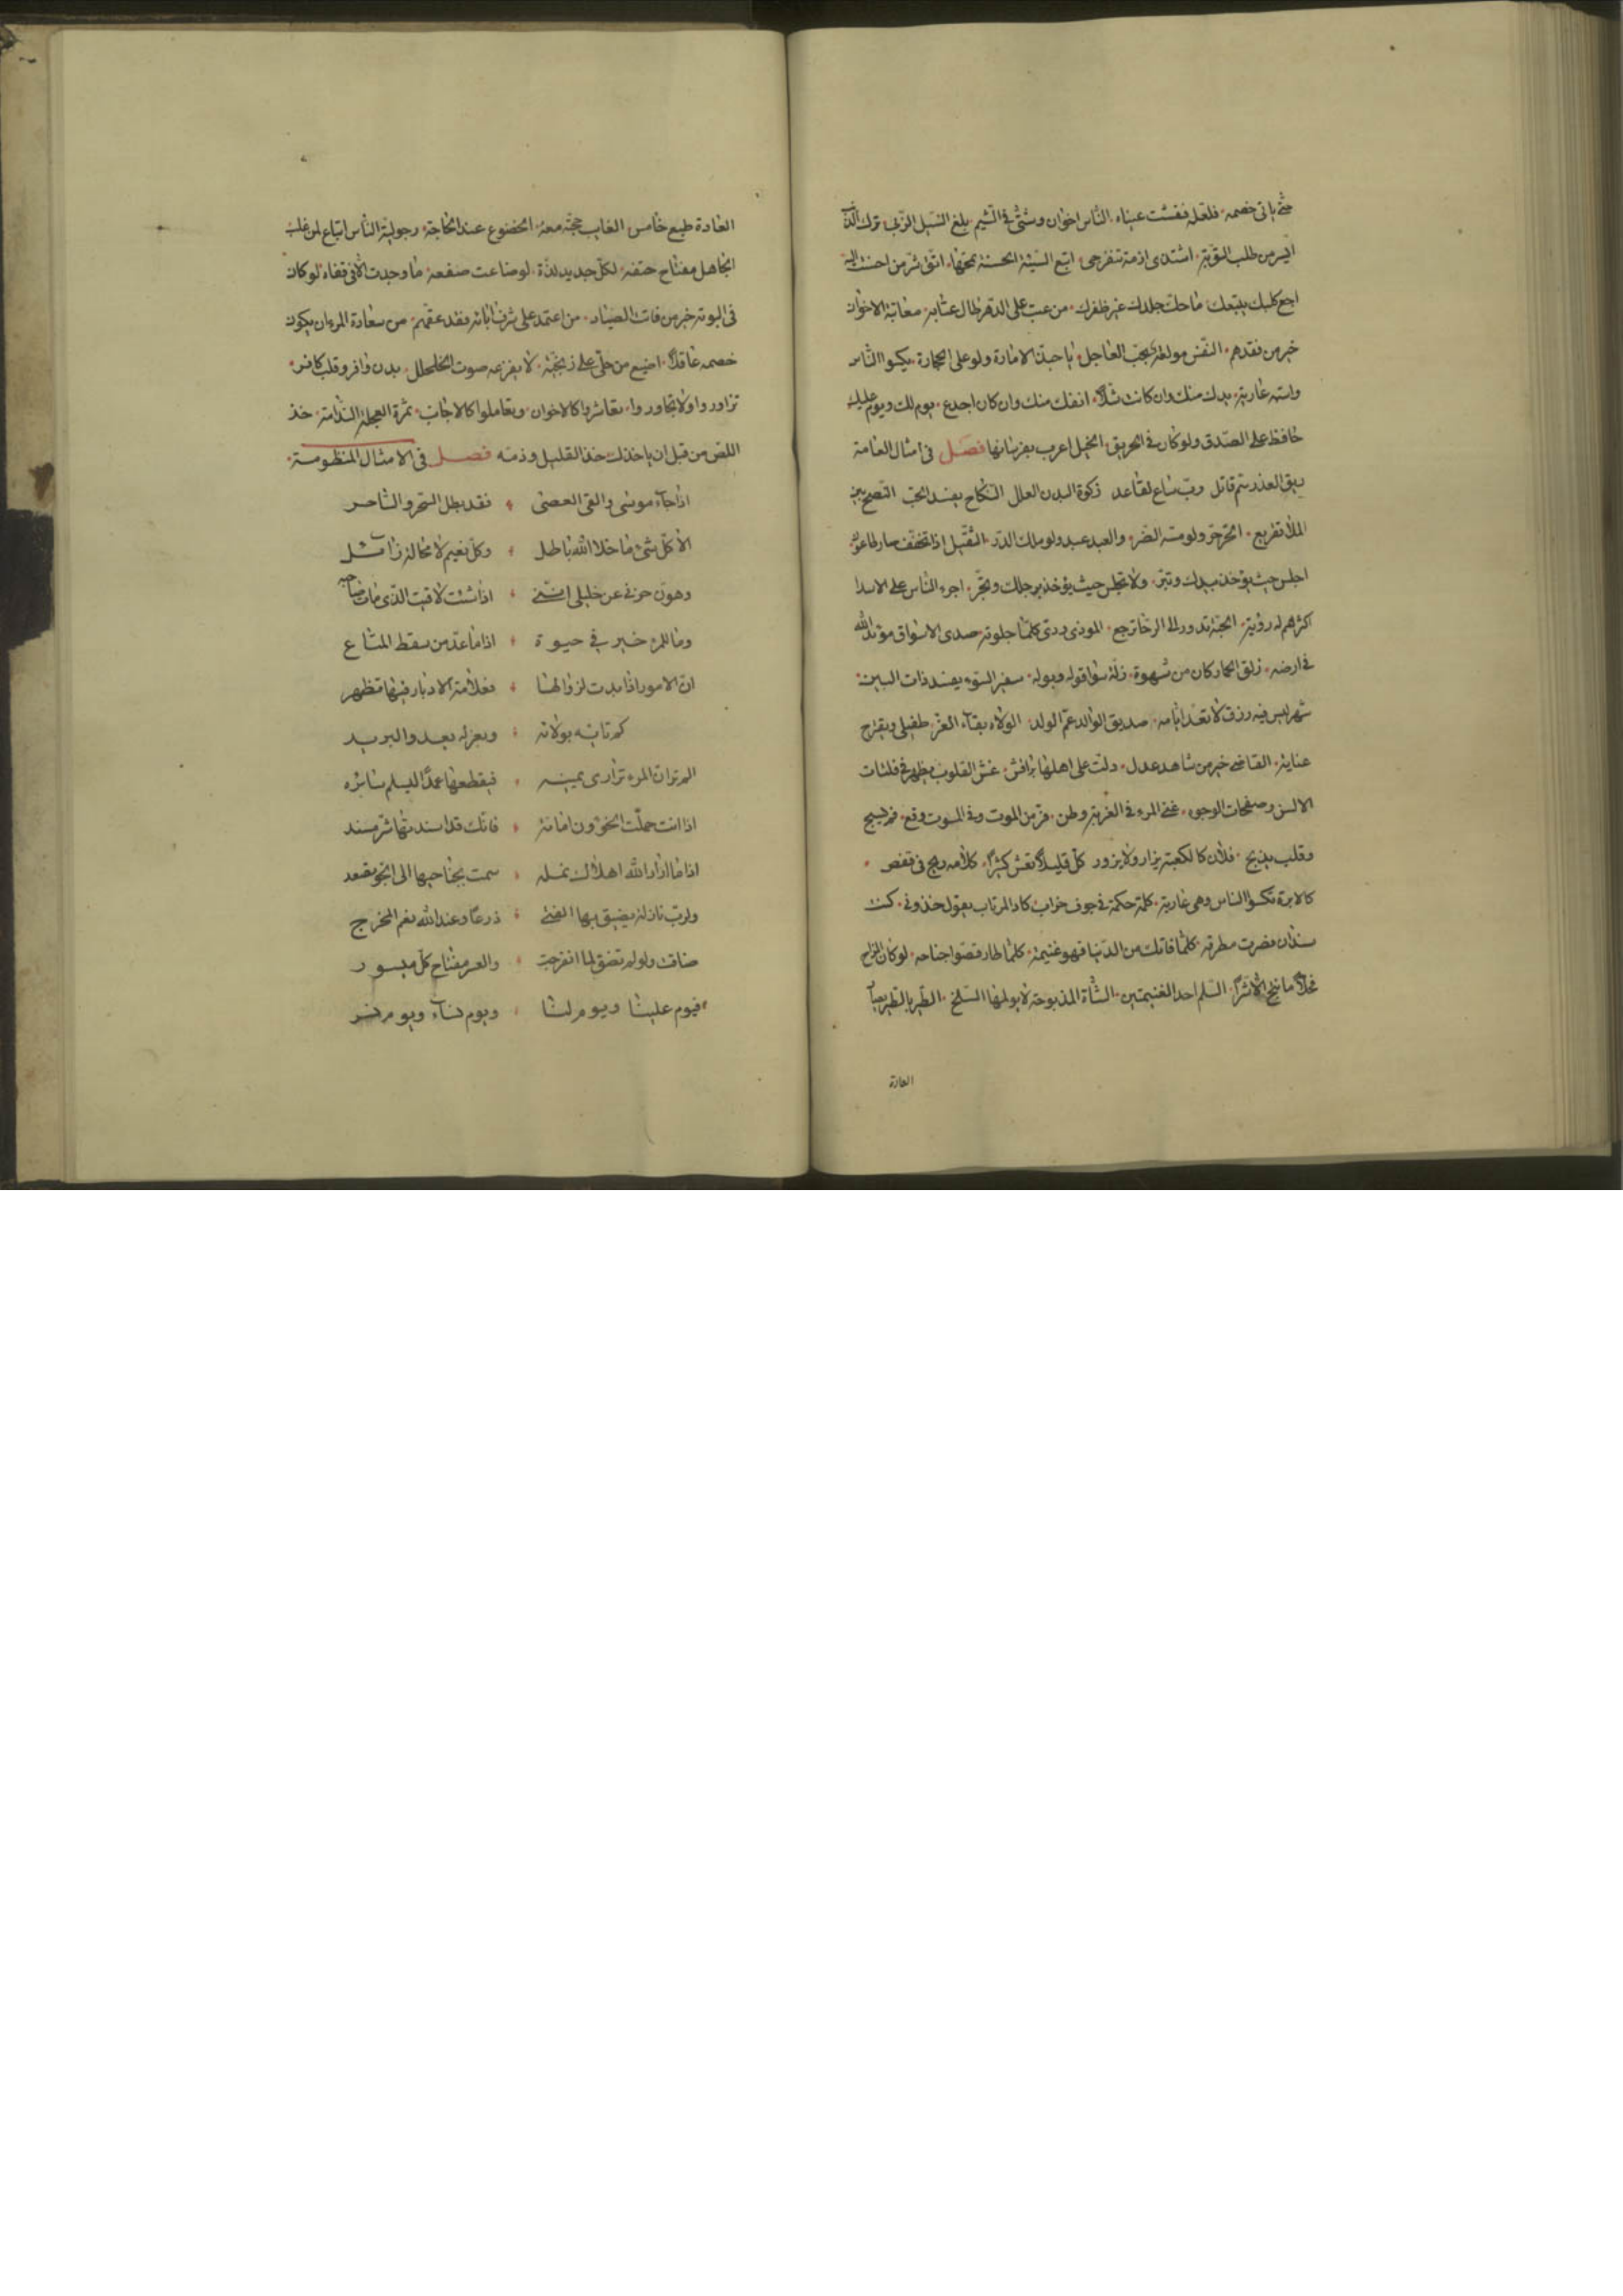 حتى ياتى خصمه فلعله فقئت عيناه الناس اخوان وشتى فى الشيم بلغ السيل الزبى ترك الذنب
ايسر من طلب التوبة اشتدى ازمة تنفرجى اتبع السيئة الحسنة تمحها اتق شر من احسنت اليه
اجع كلبك يتبعك ما حك جلدك غير ظفرك من عتب على الدهر طال عتابه معاتبة الاخوان
خير من فقدهم النفس مولعة بحب العاجل يا حبذا الامارة ولو على الحجارة يكسوا الناس
واسته عارية يدك منك وان كانت شلا انفك منك وان كان اجدع يوم لك ويوم عليك
حافظ على الصدق ولو كان فى الحريق الخيل اعرب بفرسانها فصل فى امثال العامة
قاتل رب ساع لقاعد زكوة البدن العلل النكاح يفسد الحب النصح بين
الملأ تقريع الحر حر ولو مسه الضر والعبد عبد ولو ملك الدر الثقيل اذا تخفف صار طاعون
اجلس حيث يؤخذ بيدك وتبر ولا تجلس حيث يؤخذ برجلك وتجر اجرء الناس على الاسد
اكثرهم له رؤية الحبة تدور الى الرحا ترجع كلما جلوته صدى الاسواق موائد الله
فى ارضه زلق الحمار كان من شهوة سفير السوء يفسد ذات البين
شهر ليس فيه رزق لا تعد ايامه صديق الوالد عم الولد طفيلى ويقترح
القاضى خير من شاهد عدل دلت على اهلها براقش غش القلوب يظهر فى فلتات
الالسن وصفحات الوجوه غنى المرء فى الغربة وطن فر من الموت وفى الموت وقع فم يسبح
وقلب يذبح فلان كالكعبة يزار ولا يزور كل قليلا تعش كثيرا كلامه ريح فى قفص
كالابرة تكسو الناس وهى عارية كلمة حكمة فى جوف خراب كاد المرتاب يقول خذونى كنت
سندان فصرت مطرقه كلما فاتك من الدنيا فهو غنيمة كلما طار قصوا جناحه لو كان المزاح
فحلا ما نتج الا شرا السلم احد الغنيمتين الشاة المذبوحة لا يولمها السلخ الطير بالطير يصاد
العادة
العادة طبع خامس الغايب حجته معه الخضوع عند الحاجة رجولية الناس اتباع لمن غلب
الجاهل مفتاح حتفه لكل جديد لذة لو ضاعت صفعة ما وجدت الا فى قفاه لو كان
فى البومة خير من فات الصياد من اعتمد على شرف ابائه فقد عقهم من سعادة المرء ان يكون
خصمه عاقلا اضيع من حلى على زنجية لا يفزعه صوت الجلجل بدن وافر وقلب كافر
تزاوروا ولا تجاوروا تعاشروا كالاخوان وتعاملوا كالاجانب ثمرة العجلة الندامة خذ
اللص من قبل ان ياخذك خذ القليل وذمه فصل فى الامثال المنظومة
اذا جاء موسى والقى العصى فقد بطل السحر والساحر
الا كل شئ ما خلا الله باطل وكل نعيم لا محالة زائل
وهون حزنى عن خليلى اننى اذا شئت لاقيت الذى مات صاحبه
وما للمرء خير فى حيوة اذا ما عد من سقط المتاع
ان الامور اذا بدت لزوالها فعلامة الادبار فيها تظهر
كم تائه بولاته وبعزله يعدو البريد
الم تر ان المرء تزوى يمينه فيقطعها عمدا ليسلم سائره
اذا انت حملت الخؤن امانة فانك قد اسندتها شر مسند
اذا ما اراد الله اهلاك نملة سمت بجناحيها الى الجو تصعد
ولرب نازلة يضيق بها الفتى ذرعا وعند الله نعم المخرج
ضاقت ولو لم تضق لما انفرجت والعسر مفتاح كل ميسور
فيوم علينا ويوم لنا ويوم نساء ويوم نسر